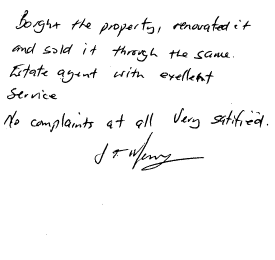 Bought the property, renovated it
and sold it through the same.
Estate agent with exellent
Service
No complaints at all Very satified.